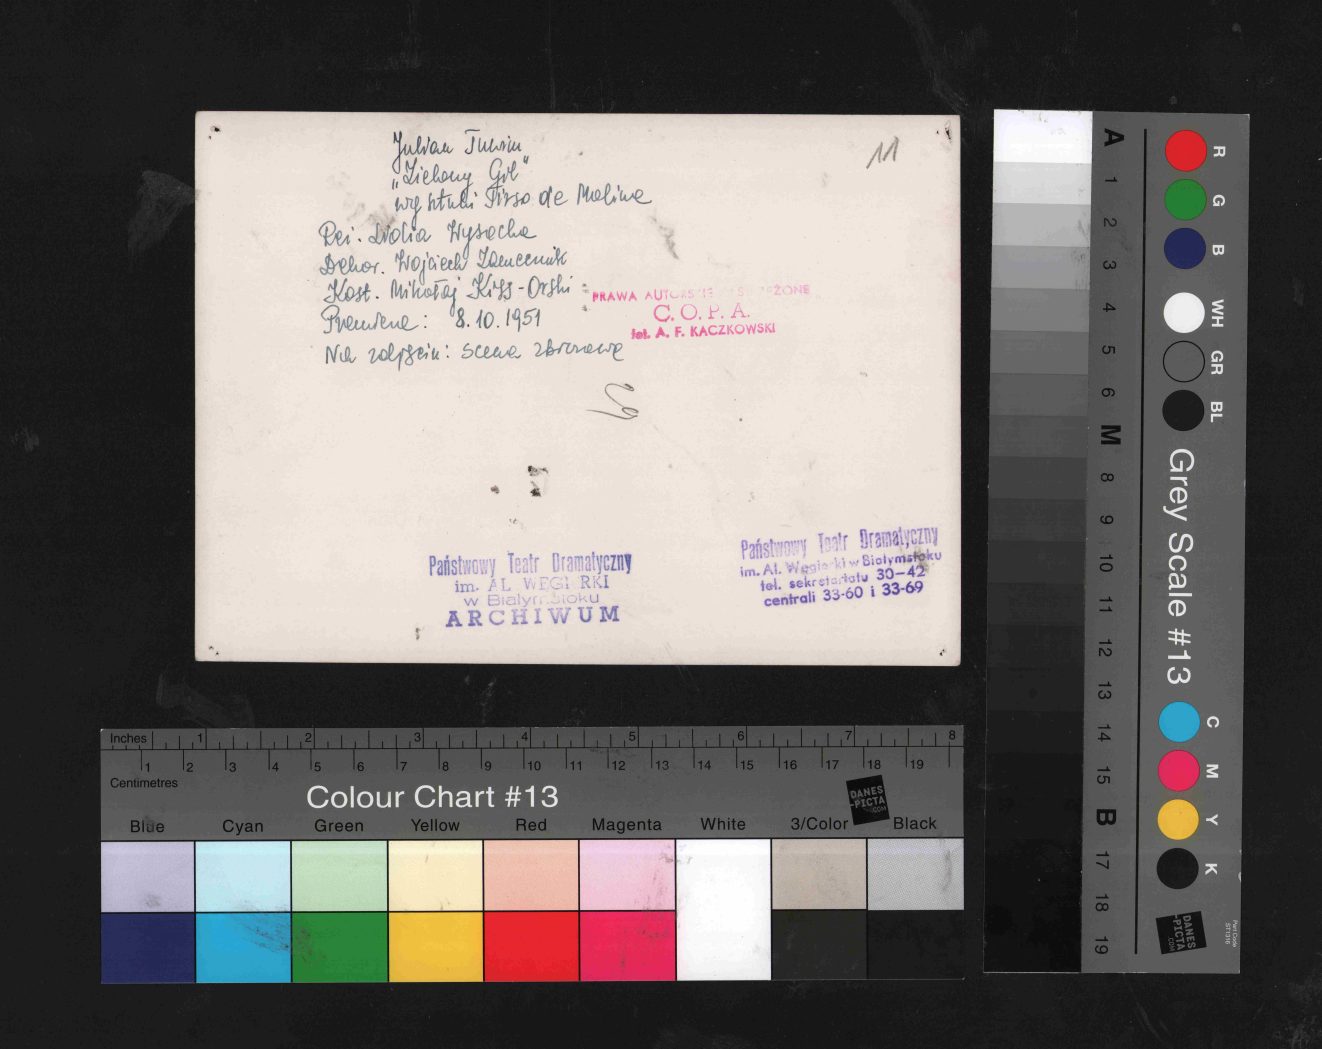 Julian Tuwim
"Zielony Gil"
wg sztuki Tirso de Molina
Reż. Lidia Wysocka
Dekor. Wojciech Zamecznik
Kost. Mikołaj Kiss-Orski
Premiera: 8.10.1951
Na zdjęciu: scena zbiorowa
11
PRAWA AUTORSKIE
C.O.P.A.
fot. A. F. KACZKOWSKI
Państwowy Teatr Dramatyczny
im. AL WĘGI RKI
w Białymstoku
ARCHIWUM
Państwowy Teatr Dramatyczny
im. Al. Węgierki w Białymstoku
tel. sekretariatu 30-42
centrali 33-60 i 33-69
Inches 1 2 3 4 5 6 7 8
1 2 3 4 5 6 7 8 9 10 11 12 13 14 15 16 17 18 19
Centimetres
Colour Chart #13
DANES
-PICTA
.COM
Blue Cyan Green Yellow Red Magenta White 3/Color Black
A 1 2 3 4 5 6 M 8 9 10 11 12 13 14 15 B 17 18 19
R G B WH GR BL
Grey Scale #13
C M Y K
DANES
-PICTA
.COM
Part Code
ST1316